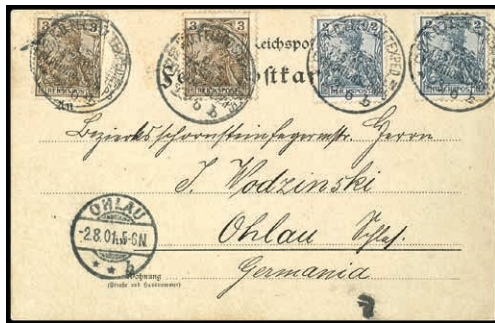 3 3 2 2
REICHSPOST REICHSPOST REICHSPOST REICHSPOST
Reichspost
Postkarte
An
Bezirksschornsteinfegermstr. Herrn
J. Wodzinski
Ohlau Schles.
Germania
OHLAU
-2.8.01.5-6N.
* * b
Wohnung
(Straße und Hausnummer)